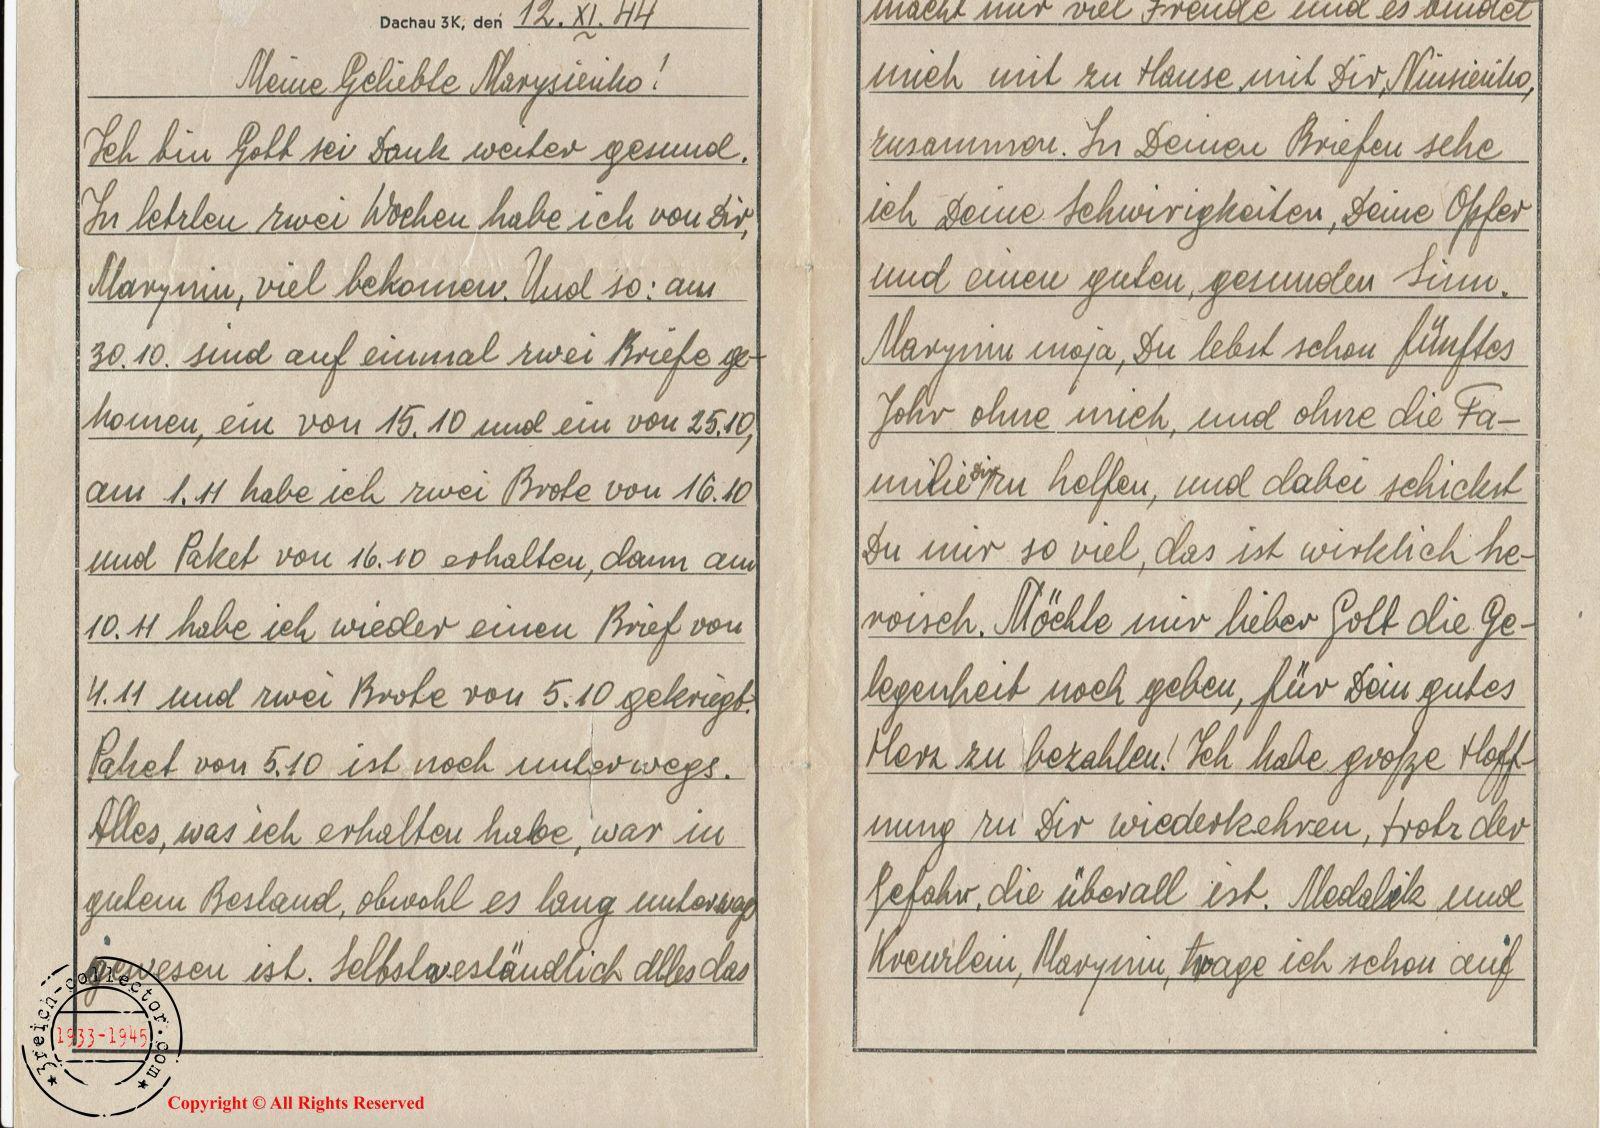 Dachau 3K, den 12. XI. 44
Meine Geliebte Marysieńko!
Ich bin Gott sei Dank weiter gesund.
In letzten zwei Wochen habe ich von Dir,
Maryniu, viel bekomen. Und so: am
30.10. sind auf einmal zwei Briefe ge-
komen, ein von 15.10 und ein von 25.10,
am 1.11 habe ich zwei Brote von 16.10
und Paket von 16.10 erhalten, dann am
10.11 habe ich wieder einen Brief von
4.11 und zwei Brote von 5.10 gekriegt.
Paket von 5.10 ist noch unterwegs.
Alles, was ich erhalten habe, war in
gutem Bestand, obwohl es lang unterwegs
gewesen ist. Selbstverständlich alles das
macht mir viel Freude und es bindet
mich mit zu Hause, mit Dir, Niusieńko,
zusammen. In Deinen Briefen sehe
ich Deine Schwirigkeiten, Deine Opfer
und einen guten, gesunden Sinn.
Maryniu moja, Du lebst schon fünftes
Johr ohne mich, und ohne die Fa-
milie Dir zu helfen, und dabei schickst
Du mir so viel, das ist wirklich he-
roisch. Möchte mir lieber Gott die Ge-
legenheit noch geben, für Dein gutes
Herz zu bezahlen! Ich habe große Hoff-
nung zu Dir wiederkehren, trotz der
Gefahr, die überall ist. Medalik und
Kreuzlein, Maryniu, trage ich schon auf
3reich-collector.com
1933-1945
Copyright © All Rights Reserved